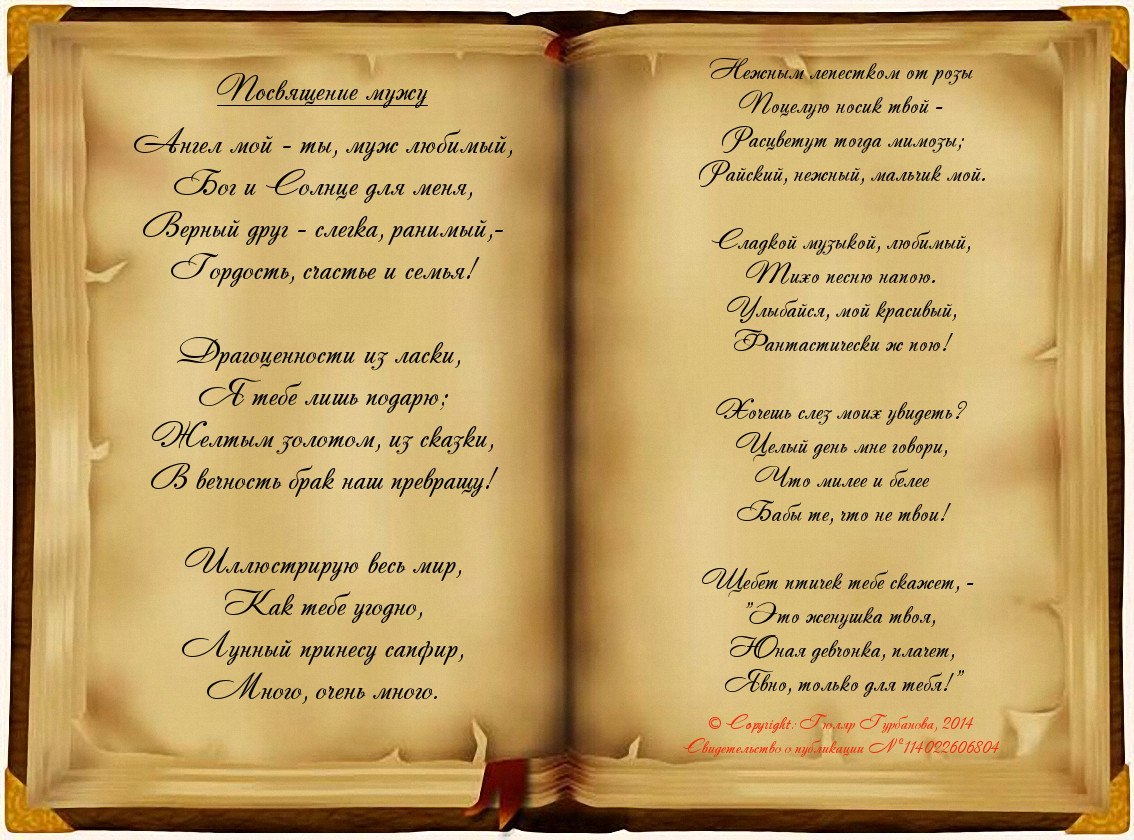 Посвящение мужу
Ангел мой - ты, муж любимый,
Бог и Солнце для меня,
Верный друг - слегка, ранимый,-
Гордость, счастье и семья!
Драгоценности из ласки,
Я тебе лишь подарю;
Желтым золотом, из сказки,
В вечность брак наш превращу!
Иллюстрирую весь мир,
Как тебе угодно,
Лунный принесу сапфир,
Много, очень много.
Нежным лепестком от розы
Поцелую носик твой -
Расцветут тогда мимозы;
Райский, нежный, мальчик мой.
Сладкой музыкой, любимый,
Тихо песню напою.
Улыбайся, мой красивый,
Фантастически ж пою!
Хочешь слез моих увидеть?
Целый день мне говори,
Что милее и белее
Бабы те, что не твои!
Щебет птичек тебе скажет, -
"Это женушка твоя,
Юная девчонка, плачет,
Явно, только для тебя!"
© Copyright: Гюляр Гурбанова, 2014
Свидетельство о публикации №114022606804